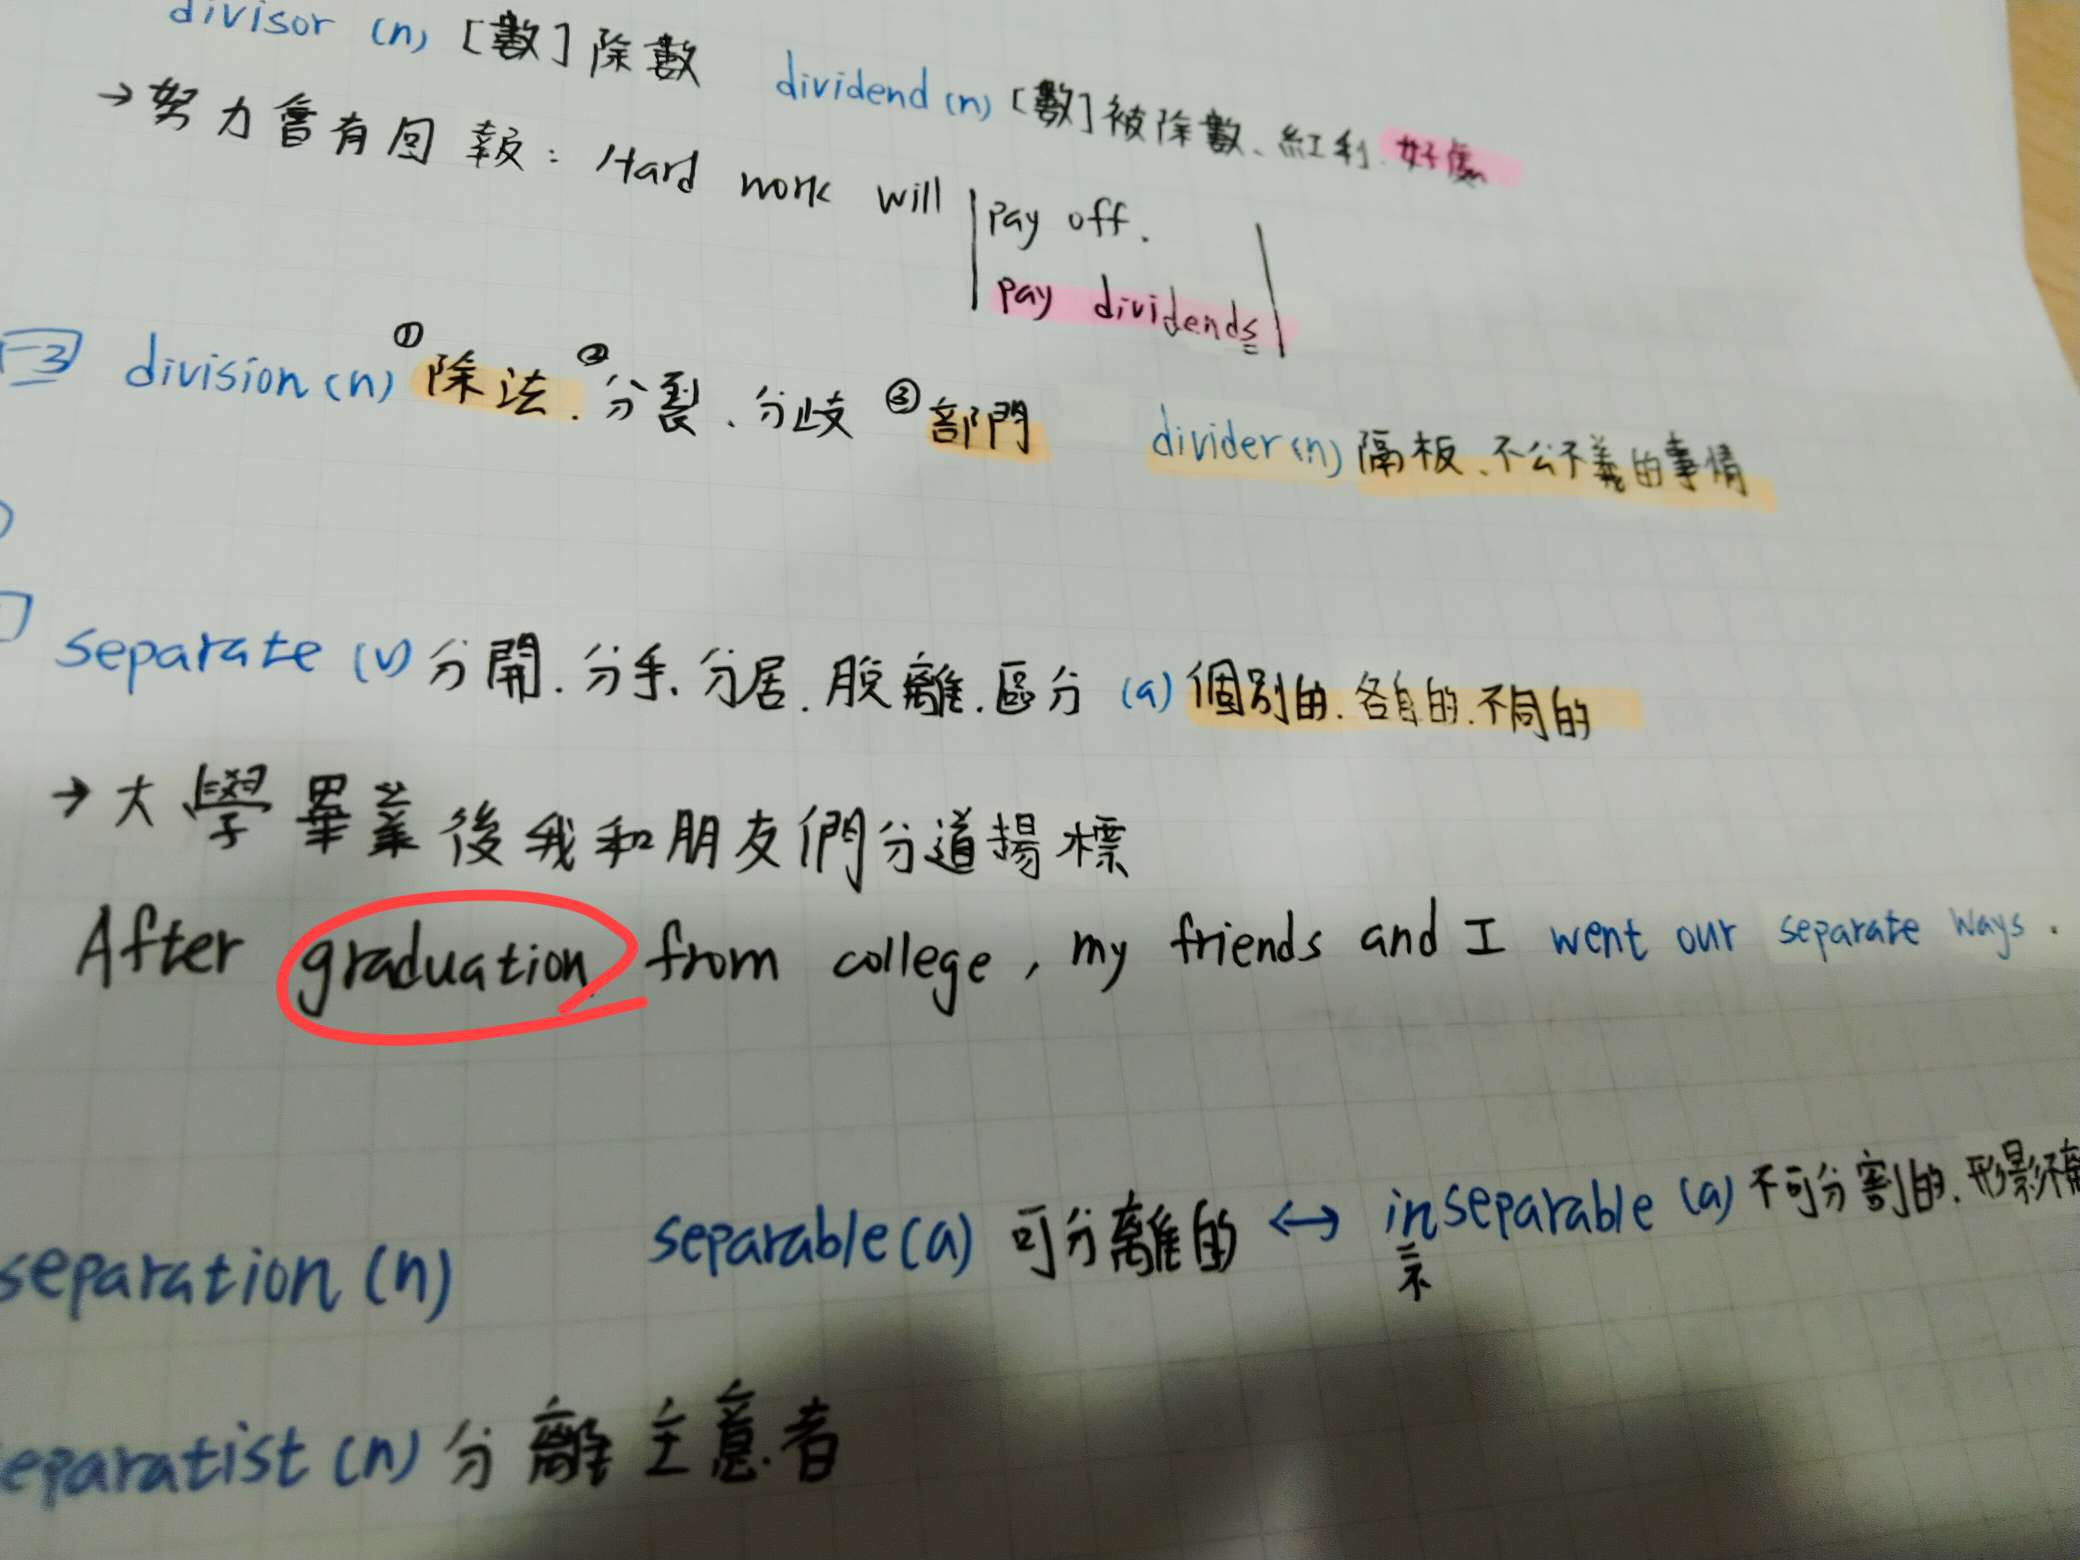 divisor (n) [數] 除數 dividend (n) [數] 被除數、紅利、好處
→ 努力會有回報: Hard work will pay off.
pay dividends
division (n) ①除法、②分裂、分歧 ③部門 divider (n) 隔板、不公不義的事情
separate (v) 分開、分手、分居、脫離、區分 (a) 個別的、各自的、不同的
→ 大學畢業後我和朋友們分道揚標
After graduation from college, my friends and I went our separate ways.
separation (n) separable (a) 可分離的 ↔ inseparable (a) 不可分割的、形影不離
不
separatist (n) 分離主意者